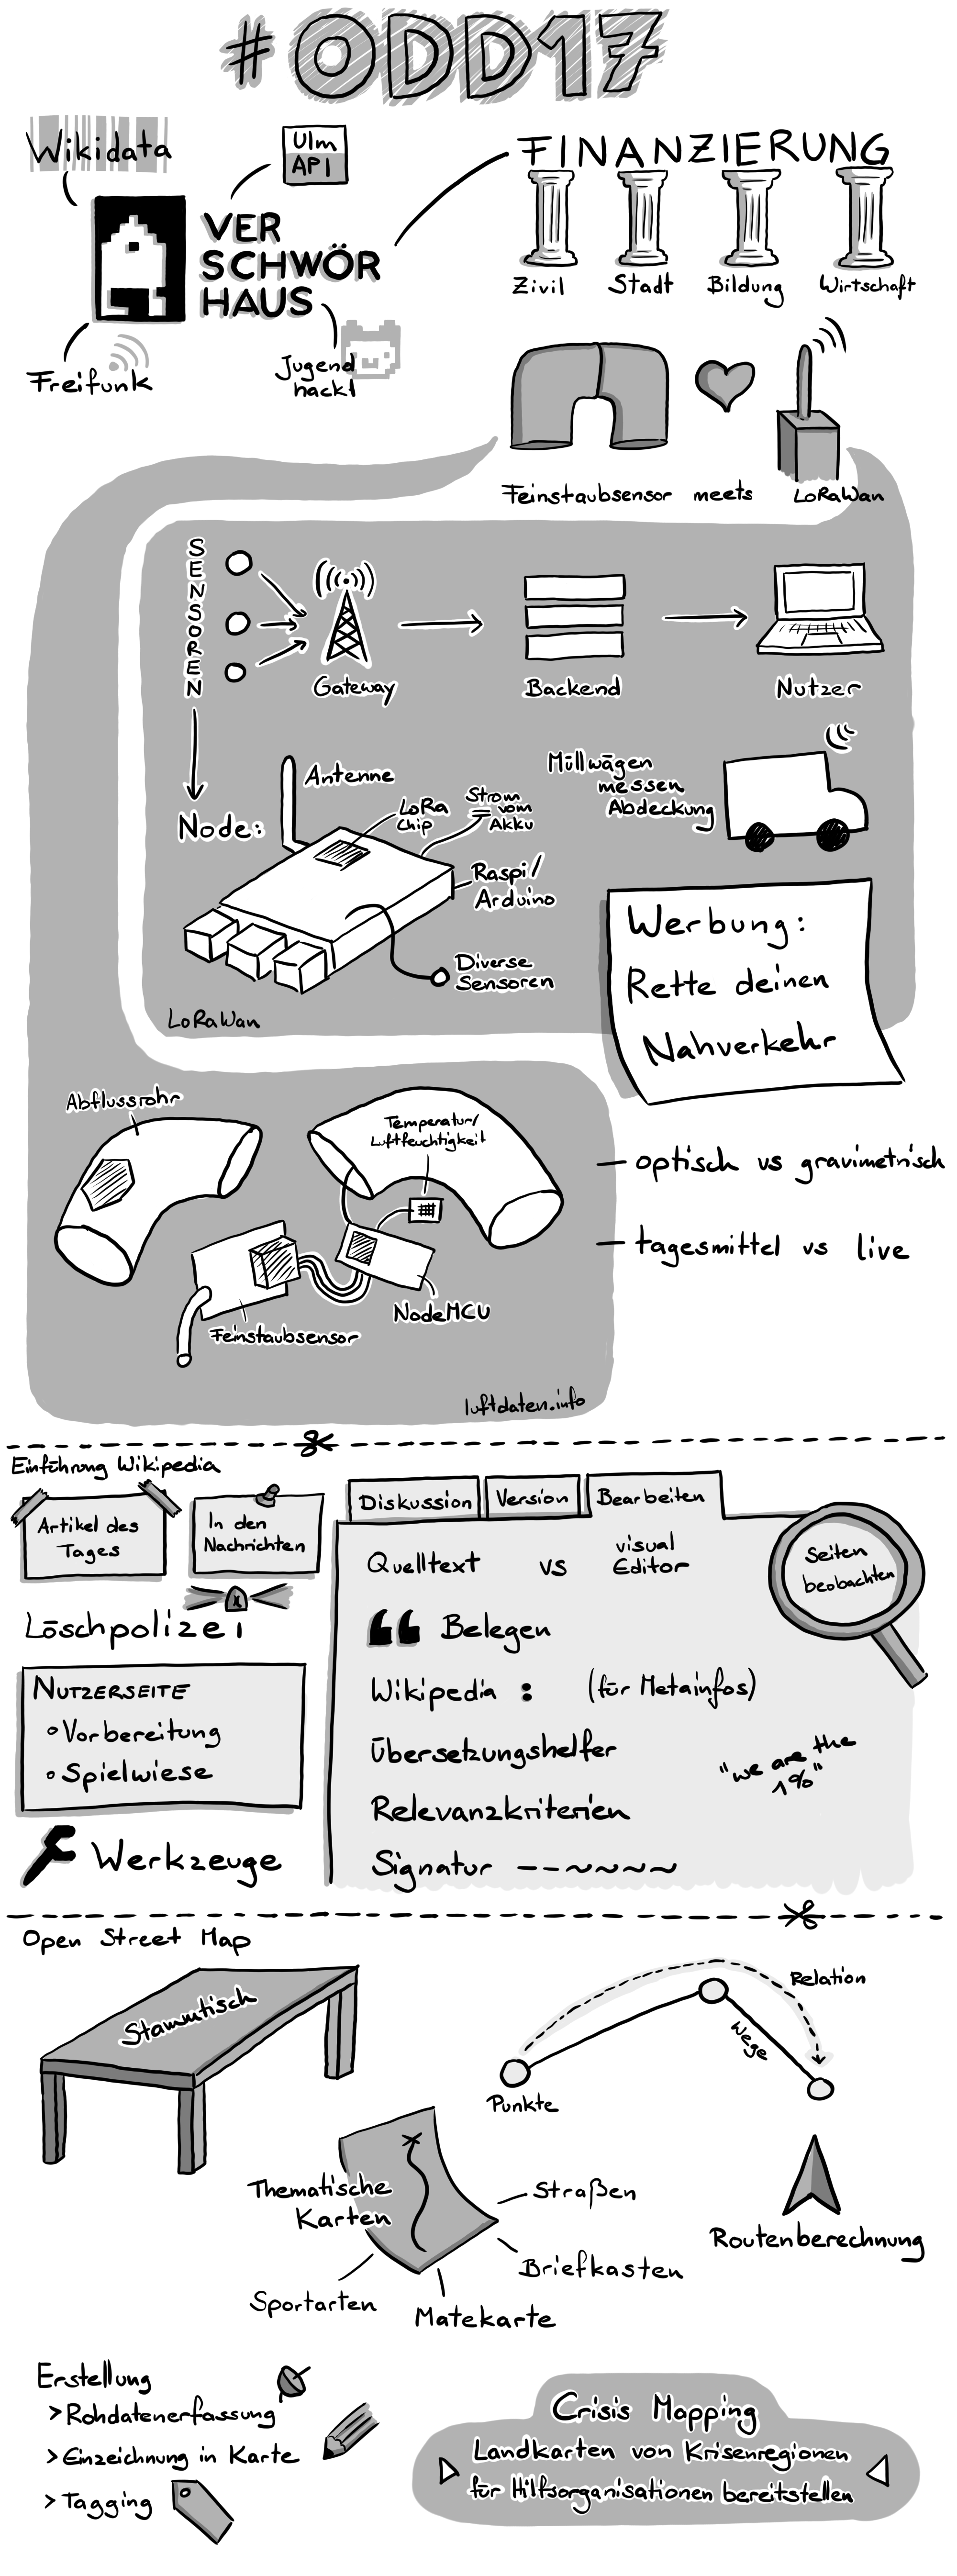 #ODD17
Wikidata
Ulm
API
VER
SCHWÖR
HAUS
Freifunk
Jugend
hackt
FINANZIERUNG
Zivil
Stadt
Bildung
Wirtschaft
Feinstaubsensor meets LoRaWan
SENSOREN
Gateway
Backend
Nutzer
Node:
Antenne
LoRa
Chip
Strom
vom
Akku
Raspi/
Arduino
Diverse
Sensoren
LoRaWan
Müllwägen
messen
Abdeckung
Werbung:
Rette deinen
Nahverkehr
Abflussrohr
Temperatur/
Luftfeuchtigkeit
Feinstaubsensor
NodeMCU
luftdaten.info
– optisch vs gravimetrisch
– tagesmittel vs live
Einführung Wikipedia
Artikel des
Tages
In den
Nachrichten
Löschpolizei
NUTZERSEITE
∘ Vorbereitung
∘ Spielwiese
Werkzeuge
Diskussion
Version
Bearbeiten
Quelltext vs visual
Editor
❝ Belegen
Wikipedia : (für Metainfos)
Übersetzungshelfer
Relevanzkriterien
Signatur --~~~~
Seiten
beobachten
"we are the
1%"
Open Street Map
Stammtisch
Punkte
Wege
Relation
Thematische
Karten
Straßen
Briefkasten
Matekarte
Sportarten
Routenberechnung
Erstellung
> Rohdatenerfassung
> Einzeichnung in Karte
> Tagging
Crisis Mapping
Landkarten von Krisenregionen
für Hilfsorganisationen bereitstellen